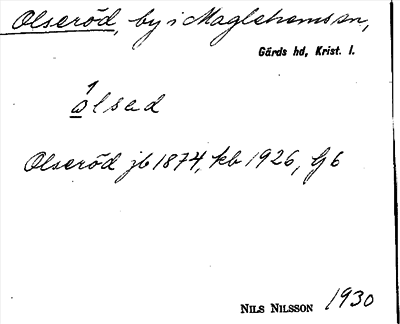 Olseröd, by i Maglehems sn,
Gärds hd, Krist. l.
1
olsed
Olseröd jb 1874, kb 1926, Gj 6
NILS NILSSON 1930